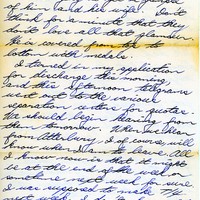 of him and his wife. Don't
think for a minute that they
don't love all that glamour.
He is covered from top to
bottom with medals.
I turned in my application
for discharge this morning
and this afternoon telegrams
went out to the various
separation centers for quotas.
We should begin hearing from
them tomorrow. When we hear
from Atterbury I, of course, will
know when I'll leave. All
I know now is that it might
be at the end of the week or
sometime next week for sure.
I was supposed to make